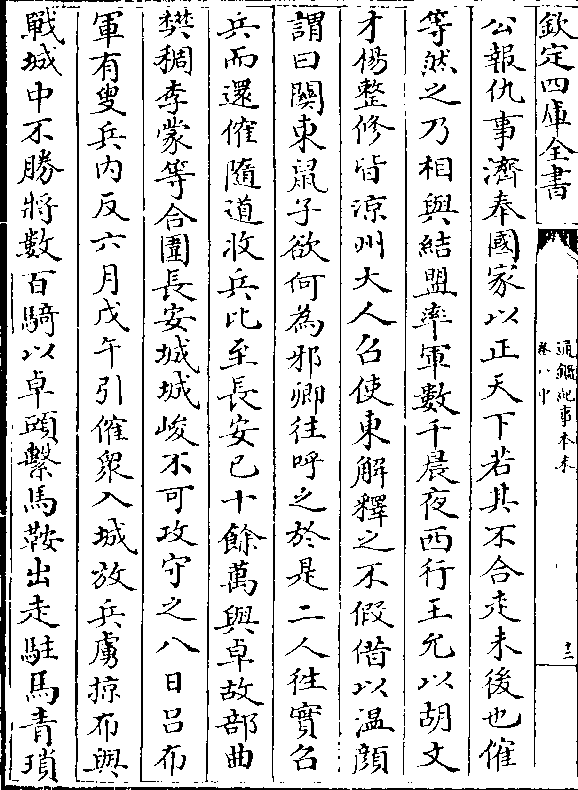 欽定四庫全書
通鑑紀事本末
卷八中
十二
公報仇事濟奉國家以正天下若其不合走未後也傕
等然之乃相與結盟率軍數千晨夜西行王允以胡文
才楊整修皆涼州大人召使東解釋之不假借以温顔
謂曰關東鼠子欲何為邪卿往呼之於是二人往實召
兵而還傕隨道收兵比至長安已十餘萬與卓故部曲
樊稠李蒙等合圍長安城城峻不可攻守之八日吕布
軍有叟兵内反六月戊午引傕衆入城放兵虜掠布與
戰城中不勝將數百騎以卓頭繫馬鞍出走駐馬青瑣